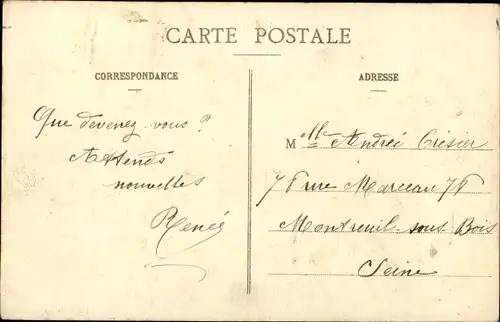 CARTE POSTALE
CORRESPONDANCE
ADRESSE
Que devenez-vous?
Attends
nouvelles
Renée
Mlle Andrée
rue Marceau
Montreuil-sous-Bois
Seine